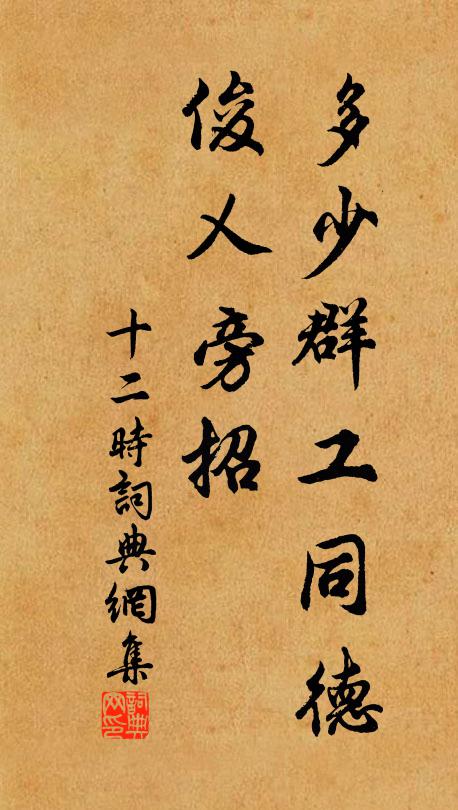 多少群工同德
俊人旁招
十二時詞典網集
詞典網印